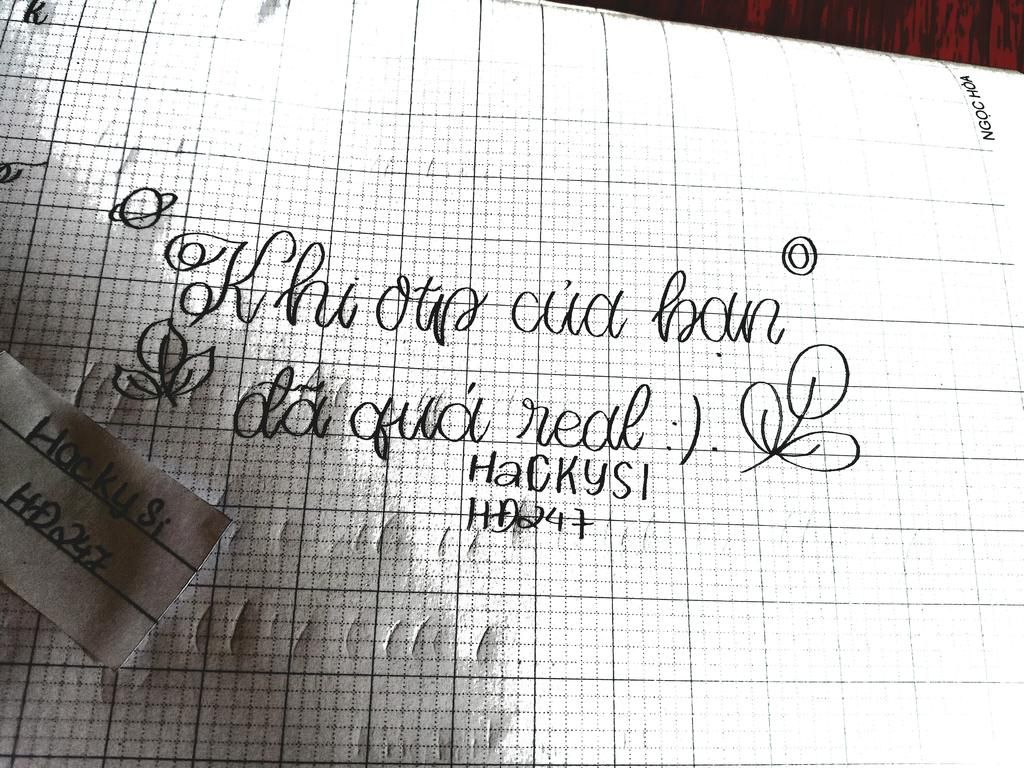 k
NGỌC HÒA
Khi otp của bạn
đã quá real :).
HaCKYSI
HĐ247
Hackysi
HĐ247